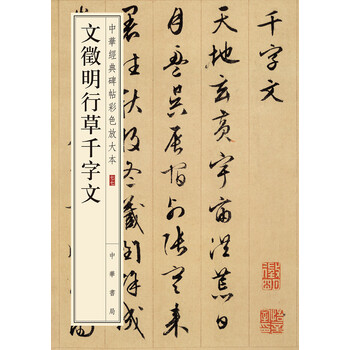 千字文
天地玄黃宇宙洪荒日
月盈昃辰宿列張寒來
暑往秋收冬藏閏餘成
中華經典碑帖彩色放大本
文徵明行草千字文
中華書局